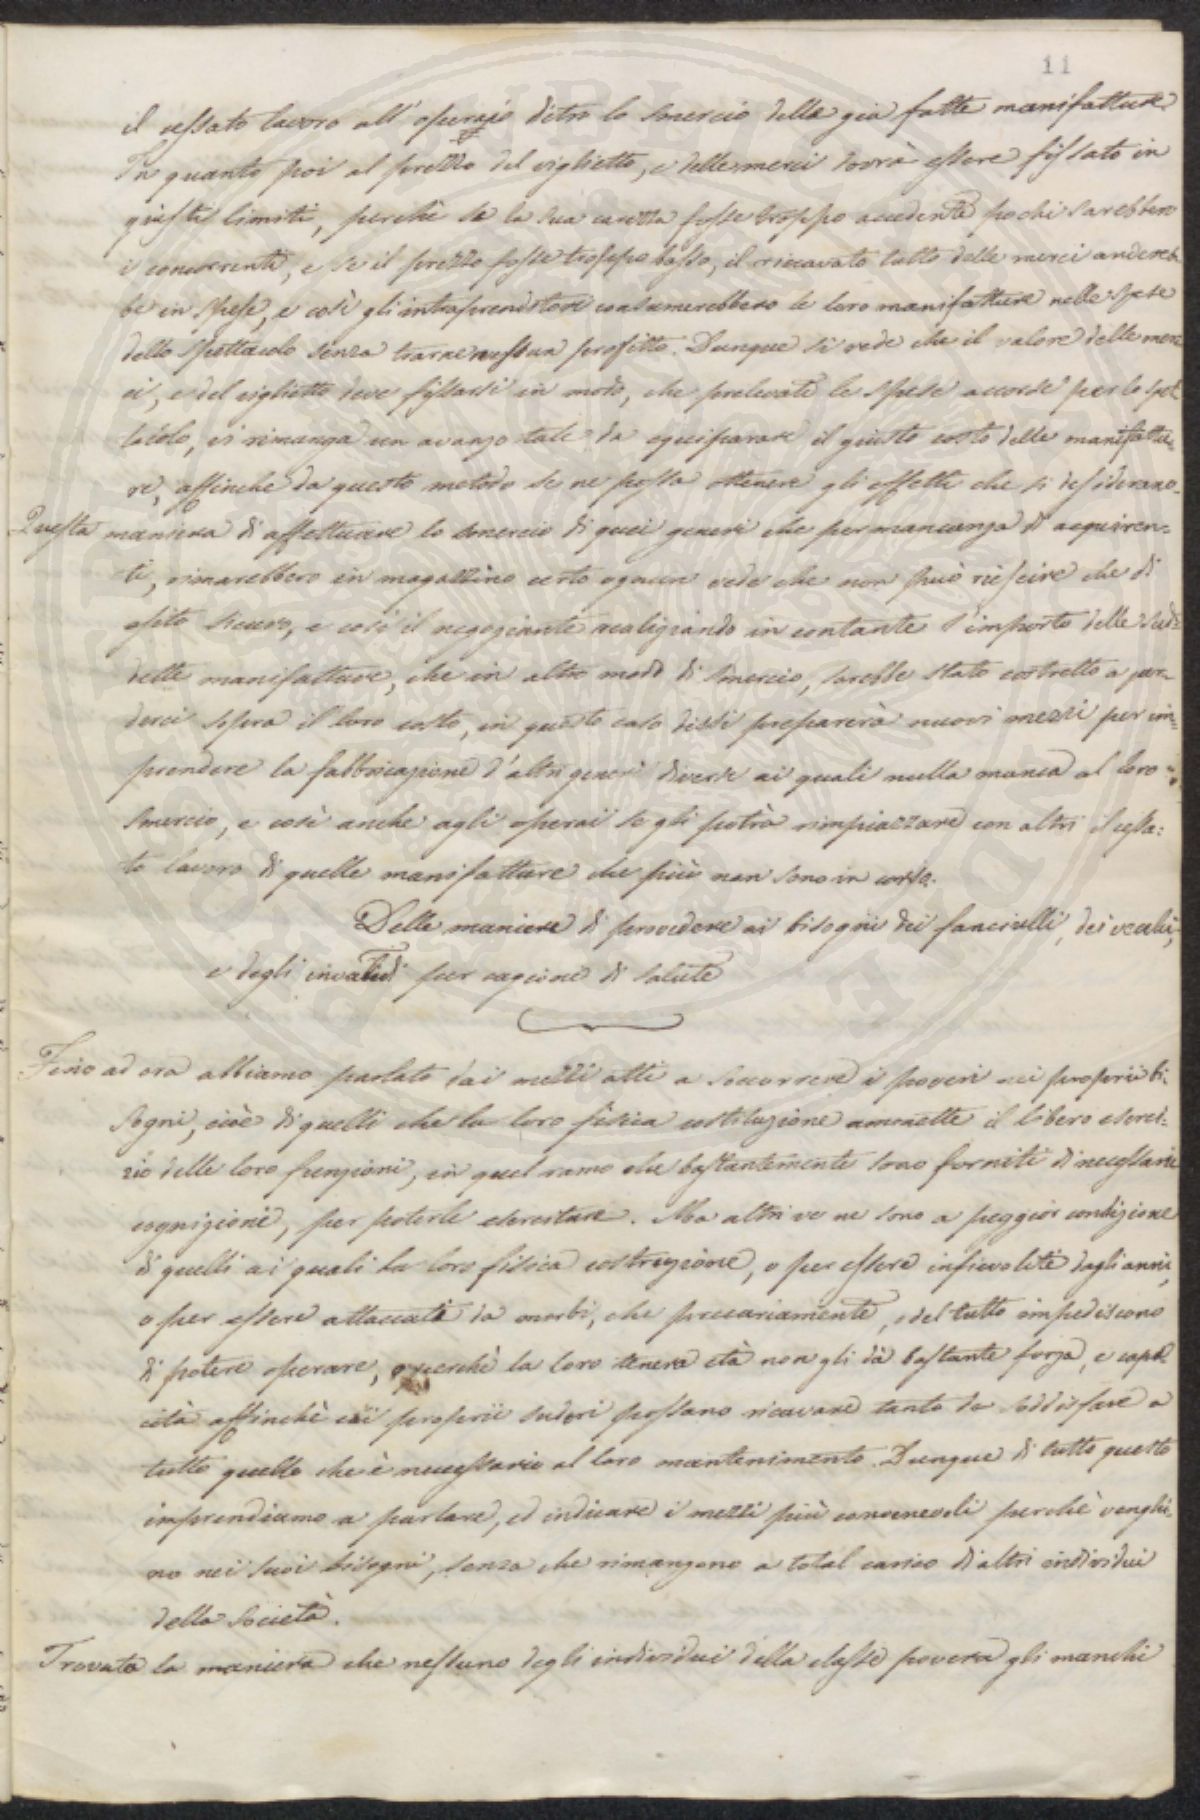 11
il cessato lavoro all' operajo dietro lo smercio delle gia fatte manifatture
In quanto poi al prezzo del viglietto, e delle merci dovrà essere fissato in
giusti limiti, perchè se la sua carezza fosse troppo accedente pochi sarebbero
i concorrenti, e se il prezzo fosse troppo basso, il riccavato tutto delle merci andereb-
be in spese, e così gli intraprenditori consumerebbero le loro manifatture nelle spese
dello spettacolo senza trarne nessun profitto. Dunque si vede che il valore delle mer-
ci, e del viglietto deve fissarsi in modo, che prelevate le spese accorse per lo spet-
tacolo, vi rimanga un avanzo tale da equiparare il giusto costo delle manifattu-
re, affinche da questo metodo se ne possa ottenere gli effetti che si desiderano.
Questa maniera di affettuare lo smercio di quei generi che per mancanza di acquiren-
ti, rimarebbero in magazzino certo ognun vede che non può riescire che di
esito sicuro, e così il negoziante realizando in contante l'importo delle sud-
dette manifatture, che in altro modo di smercio, sarebbe stato costretto a per-
derci sopra il loro costo, in questo caso dissi preparerà nuovi mezzi per im-
prendere la fabbricazione d'altri generi diversi ai quali nulla manca al loro
smercio, e così anche agli operai se gli potrà rimpiazzare con altri il cessa=
to lavoro di quelle manifatture che più non sono in corso.
Delle maniere di provedere ai bisogni dei fanciulli, dei vecchi,
e degli invalidi per cagione di salute
Fino ad ora abbiamo parlato dai mezzi atti a soccorrere i poveri nei proprii bi-
sogni, cioè di quelli che la loro fisica costituzione ammette il libero eserci-
zio delle loro funzioni, in quel ramo che bastantemente sono forniti di necessarie
cognizioni, per poterle esercitare. Ma altri ve ne sono a peggior condizione
di quelli ai quali la loro fisica costruzione, o per essere infievolite dagli anni,
o per essere attaccati da morbi, che precariamente, o del tutto impediscono
di potere operare, o perchè la loro tenera età non gli dà bastante forza, e capa-
cità affinchè coi proprii sudori possano ricavare tanto da soddisfare a
tutto quello che è necessario al loro mantenimento. Dunque di tutto questo
imprendiamo a parlare, ed indicare i mezzi più convenevoli perchè venghi-
no nei suoi bisogni, senza che rimangono a total carico di altri individui
della società.
Trovata la maniera che nessuno degli individui della classe povera gli manchi